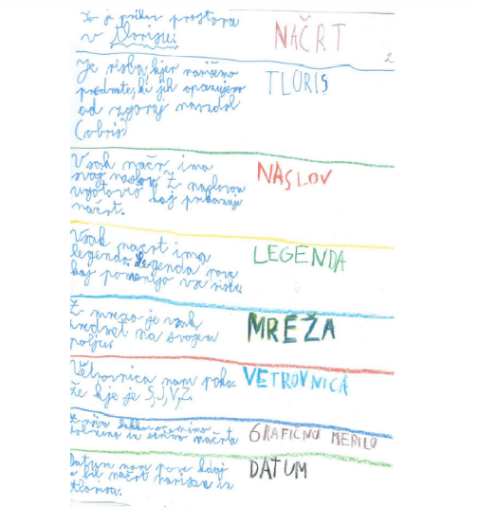 To je prikaz prostora
v tlorisu.
NAČRT
2
Je risba, kjer narišemo
predmete, ki jih opazujemo
od zgoraj navzdol
(obris)
TLORIS
Vsak načrt ima
svoj naslov. Z naslovom
ugotoviš kaj prikazuje
načrt.
NASLOV
Vsak načrt ima
legendo. Legenda pove
kaj pomenijo
LEGENDA
Z mrežo je vsak
predmet na svojem
polju.
MREŽA
Vetrovnica nam poka
že kje je S, J, V, Z.
VETROVNICA
Z njim lahko ocenimo
dolžino in širino načrta
GRAFIČNO MERILO
Datum nam pove kdaj
je bil načrt narisan iz
tlorisa.
DATUM